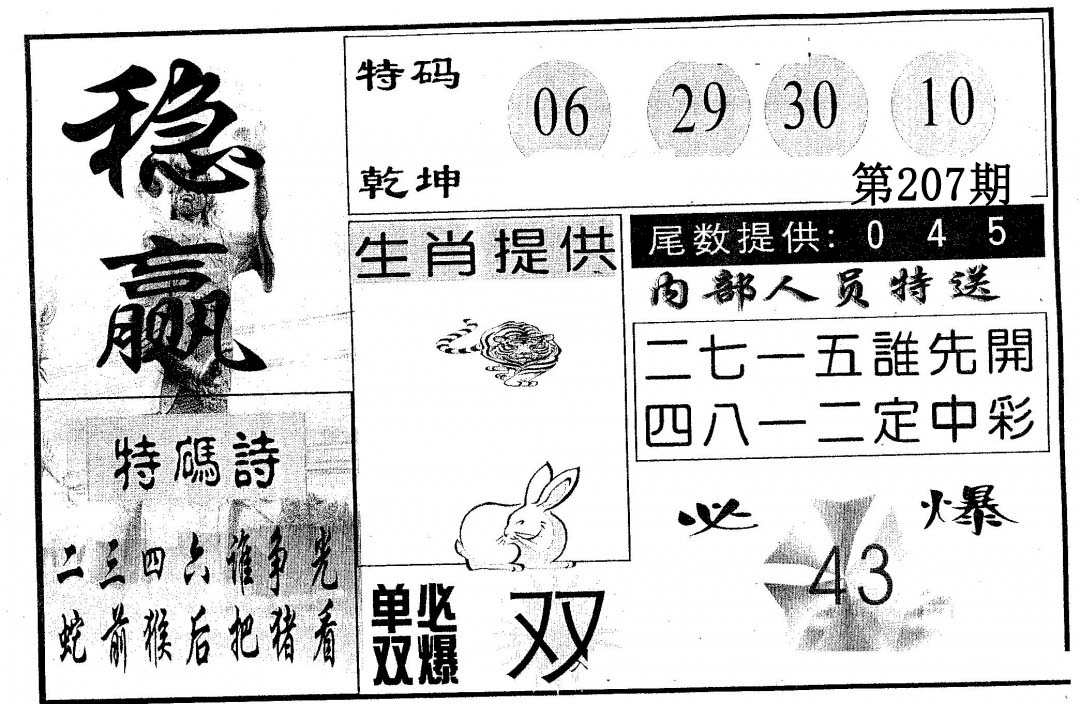 稳赢
特码 06 29 30 10
乾坤 第207期
生肖提供
尾数提供: 0 4 5
内部人员特送
二七一五誰先開
四八一二定中彩
特碼詩
二三四六谁争光
蛇前猴后把猪看
必爆
43
单双必爆 双